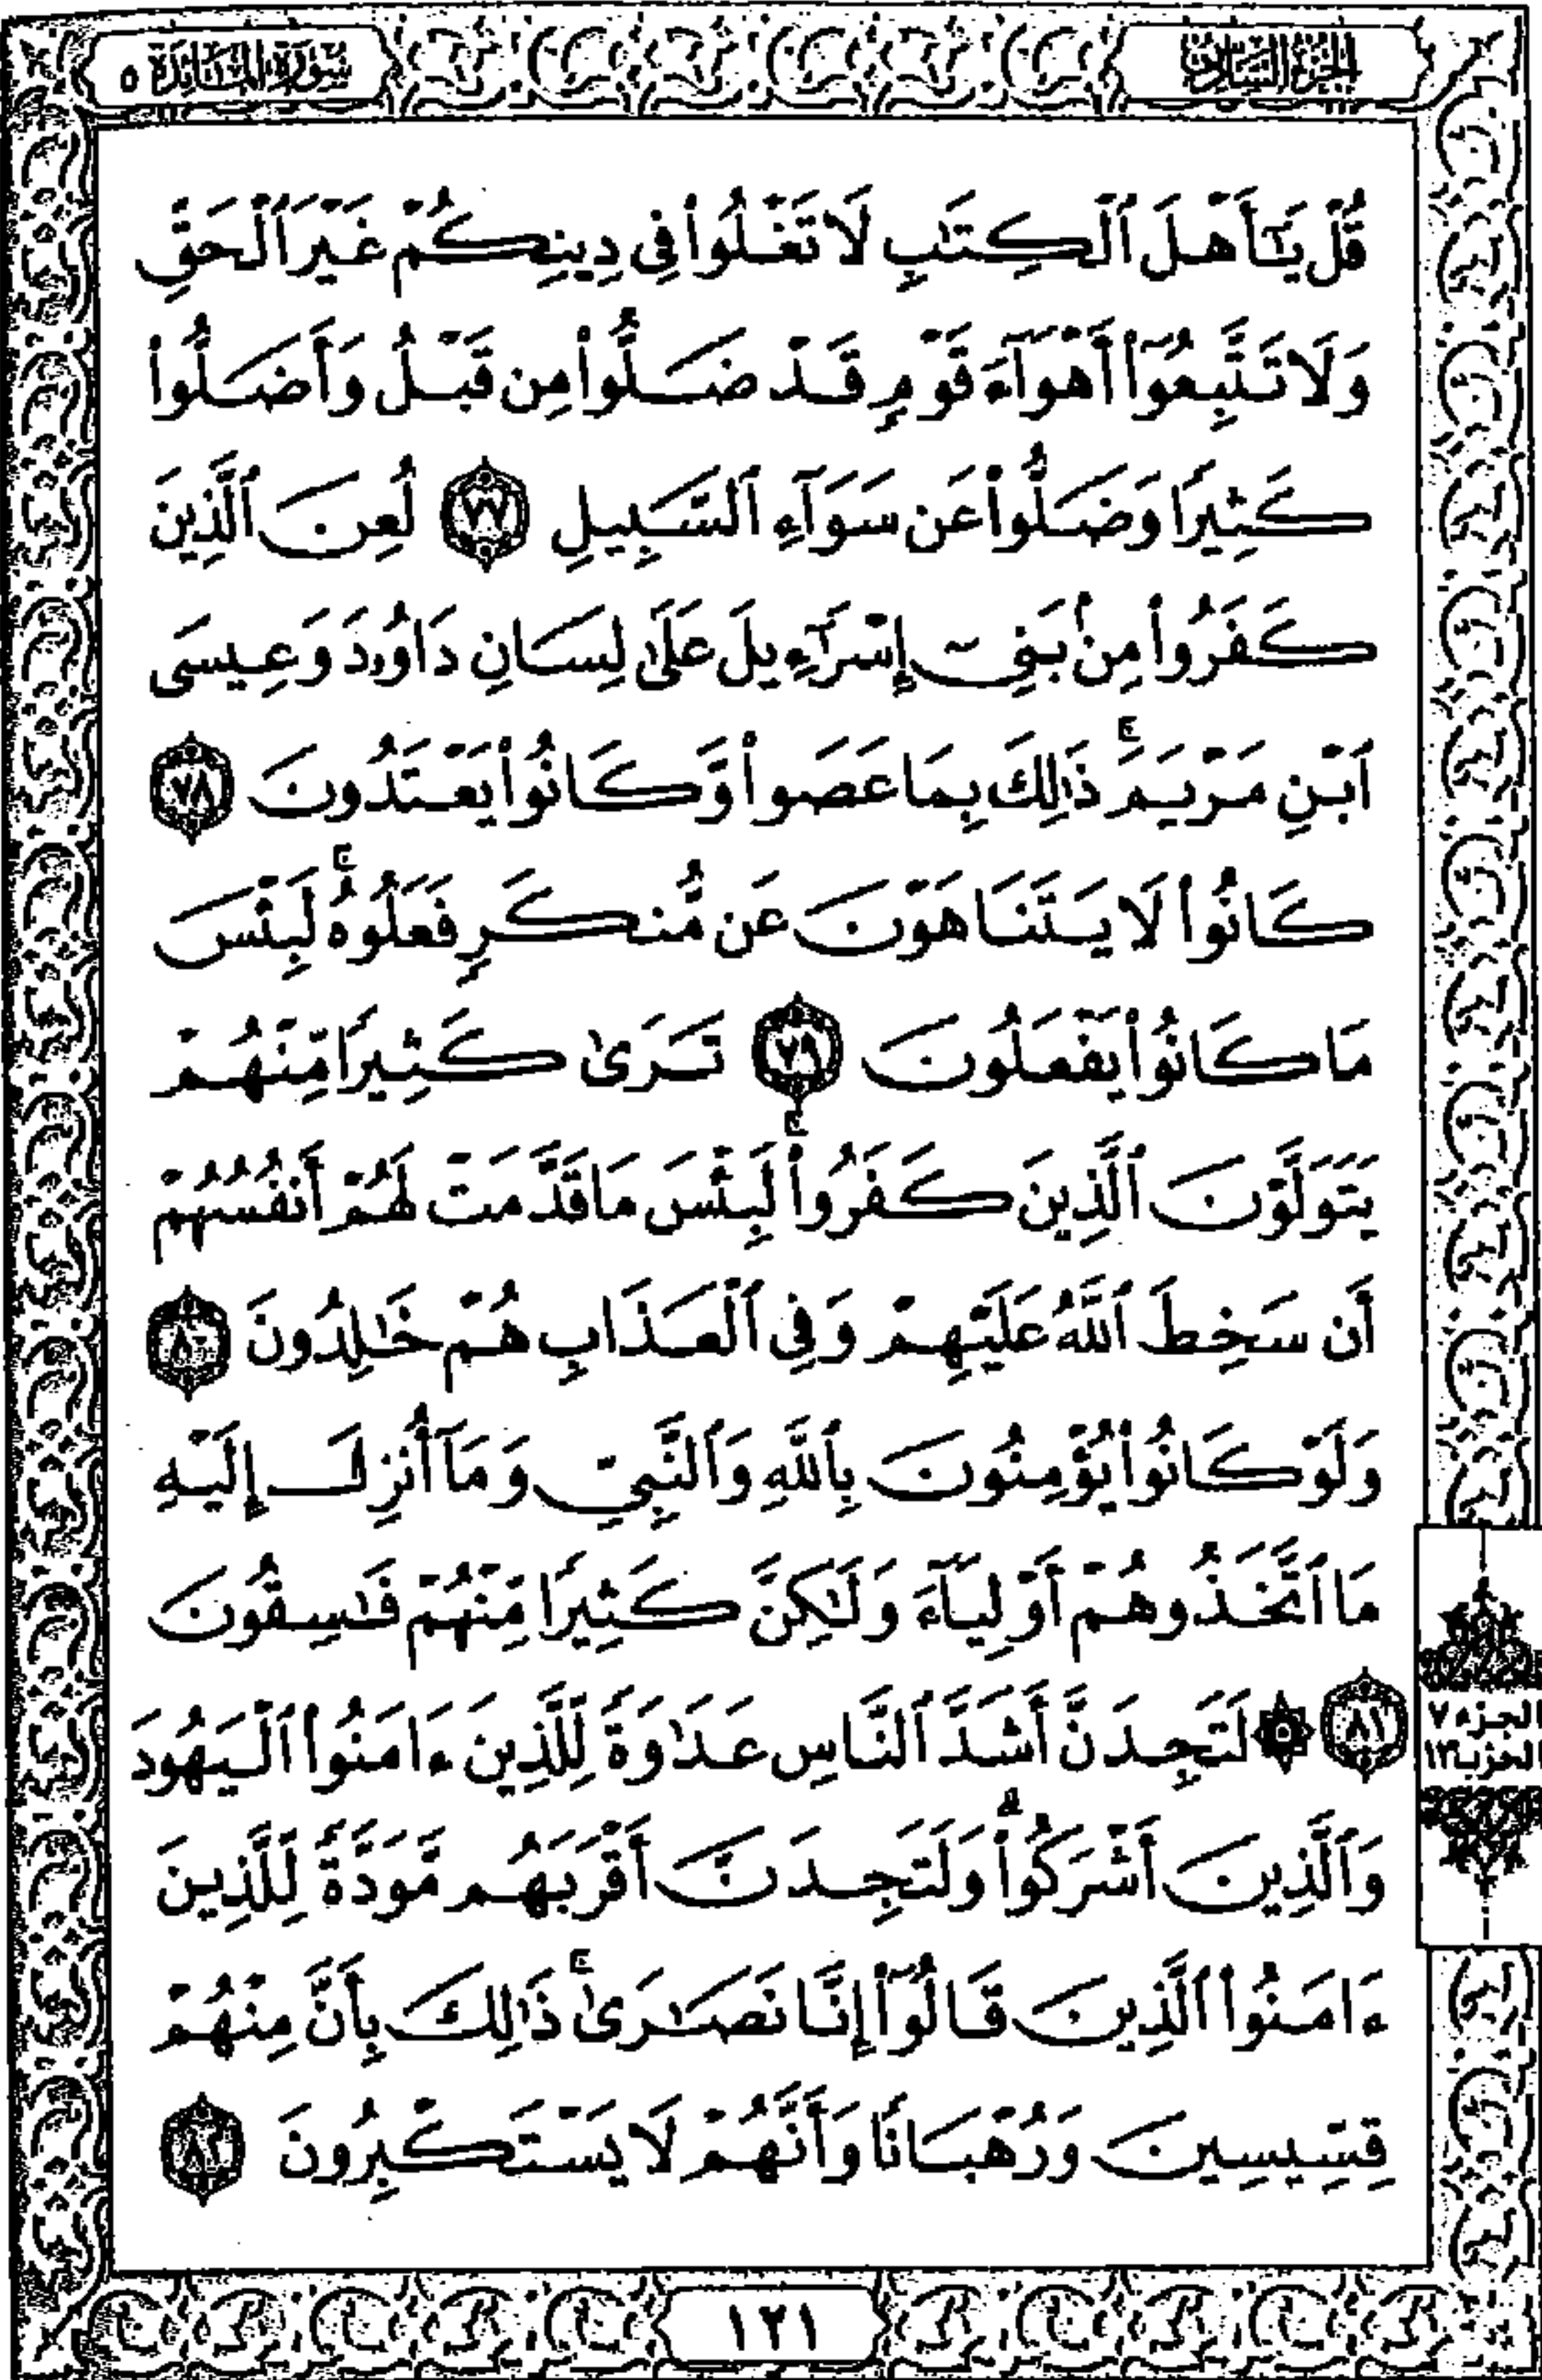 الجزء السادس
سورة المائدة ٥
قُلْ يَٰٓأَهْلَ ٱلْكِتَٰبِ لَا تَغْلُوا۟ فِى دِينِكُمْ غَيْرَ ٱلْحَقِّ
وَلَا تَتَّبِعُوٓا۟ أَهْوَآءَ قَوْمٍ قَدْ ضَلُّوا۟ مِن قَبْلُ وَأَضَلُّوا۟
كَثِيرًا وَضَلُّوا۟ عَن سَوَآءِ ٱلسَّبِيلِ ٧٧ لُعِنَ ٱلَّذِينَ
كَفَرُوا۟ مِنۢ بَنِىٓ إِسْرَٰٓءِيلَ عَلَىٰ لِسَانِ دَاوُۥدَ وَعِيسَى
ٱبْنِ مَرْيَمَ ۚ ذَٰلِكَ بِمَا عَصَوا۟ وَّكَانُوا۟ يَعْتَدُونَ ٧٨
كَانُوا۟ لَا يَتَنَاهَوْنَ عَن مُّنكَرٍ فَعَلُوهُ ۚ لَبِئْسَ
مَا كَانُوا۟ يَفْعَلُونَ ٧٩ تَرَىٰ كَثِيرًا مِّنْهُمْ
يَتَوَلَّوْنَ ٱلَّذِينَ كَفَرُوا۟ ۚ لَبِئْسَ مَا قَدَّمَتْ لَهُمْ أَنفُسُهُمْ
أَن سَخِطَ ٱللَّهُ عَلَيْهِمْ وَفِى ٱلْعَذَابِ هُمْ خَٰلِدُونَ ٨٠
وَلَوْ كَانُوا۟ يُؤْمِنُونَ بِٱللَّهِ وَٱلنَّبِىِّ وَمَآ أُنزِلَ إِلَيْهِ
مَا ٱتَّخَذُوهُمْ أَوْلِيَآءَ وَلَٰكِنَّ كَثِيرًا مِّنْهُمْ فَٰسِقُونَ
٨١ ۞ لَتَجِدَنَّ أَشَدَّ ٱلنَّاسِ عَدَٰوَةً لِّلَّذِينَ ءَامَنُوا۟ ٱلْيَهُودَ
وَٱلَّذِينَ أَشْرَكُوا۟ ۖ وَلَتَجِدَنَّ أَقْرَبَهُم مَّوَدَّةً لِّلَّذِينَ
ءَامَنُوا۟ ٱلَّذِينَ قَالُوٓا۟ إِنَّا نَصَٰرَىٰ ۚ ذَٰلِكَ بِأَنَّ مِنْهُمْ
قِسِّيسِينَ وَرُهْبَانًا وَأَنَّهُمْ لَا يَسْتَكْبِرُونَ ٨٢
الجزء ٧
الحزب ١٣
١٢١